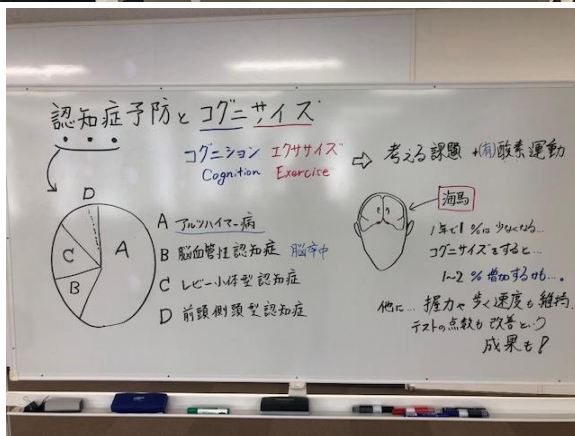 認知症予防とコグニサイズ
コグニション エクササイズ ⇨ 考える課題 +(有)酸素運動
Cognition Exercise
D
C
A
B
A アルツハイマー病
B 脳血管性認知症 脳卒中
C レビー小体型認知症
D 前頭側頭型認知症
海馬
1年で1%は少なくなる…
コグニサイズをすると…
1~2%増加するかも…。
他に… 握力や歩く速度も維持、
テストの点数も改善という
成果も!